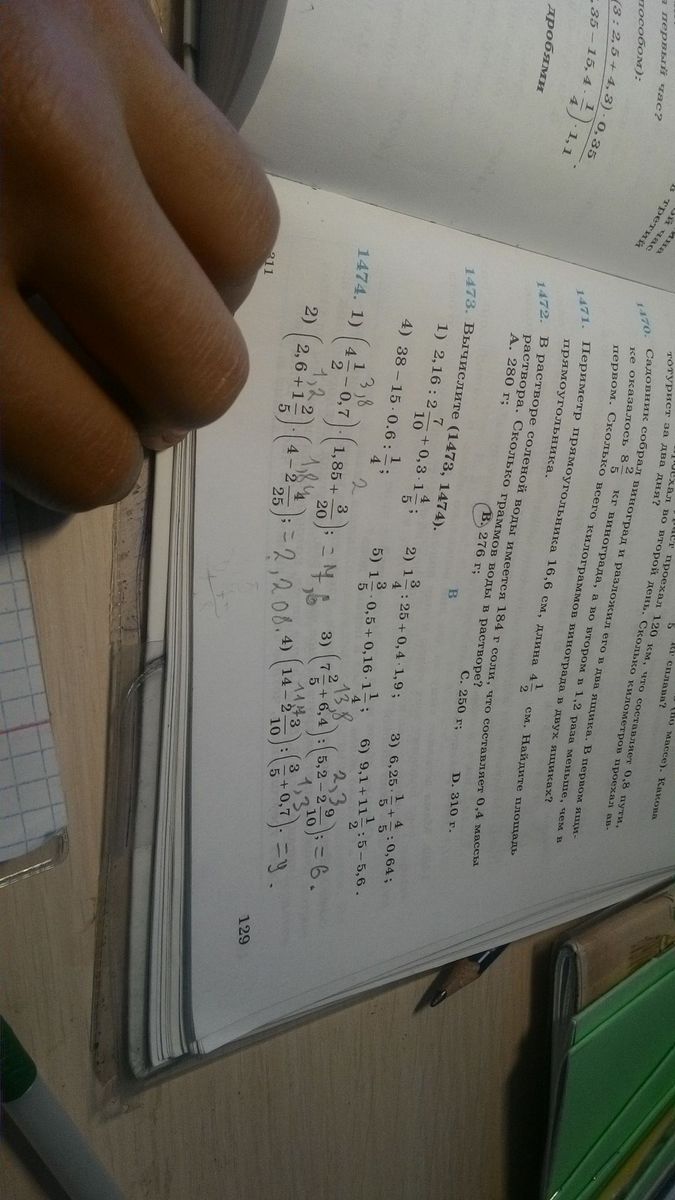 (3 : 2,5 + 4,3) · 0,35
35 − 15,4 · 1/4) · 1,1
дробями
первый час?
пособом):
третий
тотурист за два дня?
проехал во второй день. Сколько километров проехал ав-
проехал 120 км, что составляет 0,8 пути,
кг сплава?
(по массе). Какова
1470. Садовник собрал виноград и разложил его в два ящика. В первом ящи-
ке оказалось 8 2/5 кг винограда, а во втором в 1,2 раза меньше, чем в
первом. Сколько всего килограммов винограда в двух ящиках?
1471. Периметр прямоугольника 16,6 см, длина 4 1/2 см. Найдите площадь
прямоугольника.
1472. В растворе соленой воды имеется 184 г соли, что составляет 0,4 массы
раствора. Сколько граммов воды в растворе?
A. 280 г; B. 276 г; C. 250 г; D. 310 г.
B
1473. Вычислите (1473, 1474).
1) 2,16 : 2 7/10 + 0,3 · 1 4/5; 2) 1 3/4 : 25 + 0,4 · 1,9; 3) 6,25 · 1/5 + 4/5 : 0,64;
4) 38 − 15 · 0,6 : 1/4; 5) 1 3/5 · 0,5 + 0,16 · 1 1/4; 6) 9,1 + 11 1/2 : 5 − 5,6.
3,8 2 13,8 2,3
1474. 1) (4 1/2 − 0,7) · (1,85 + 3/20); = 7,6 3) (7 2/5 + 6,4) : (5,2 − 2 9/10); = 6.
1,2 1,84 11,7 1,3
2) (2,6 + 1 2/5) · (4 − 2 4/25); = 2,208. 4) (14 − 2 3/10) : (3/5 + 0,7). = 9.
129
311